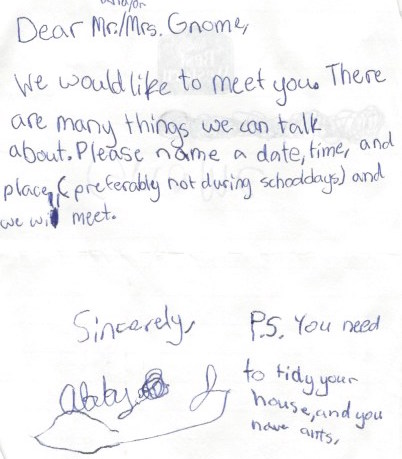 and/or
Dear Mr./Mrs. Gnome,
We would like to meet you. There
are many things we can talk
about. Please name a date, time, and
place, (preferably not during schooldays) and
we will meet.
Sincerely,
Abby
P.S. You need
to tidy your
house, and you
have ants.